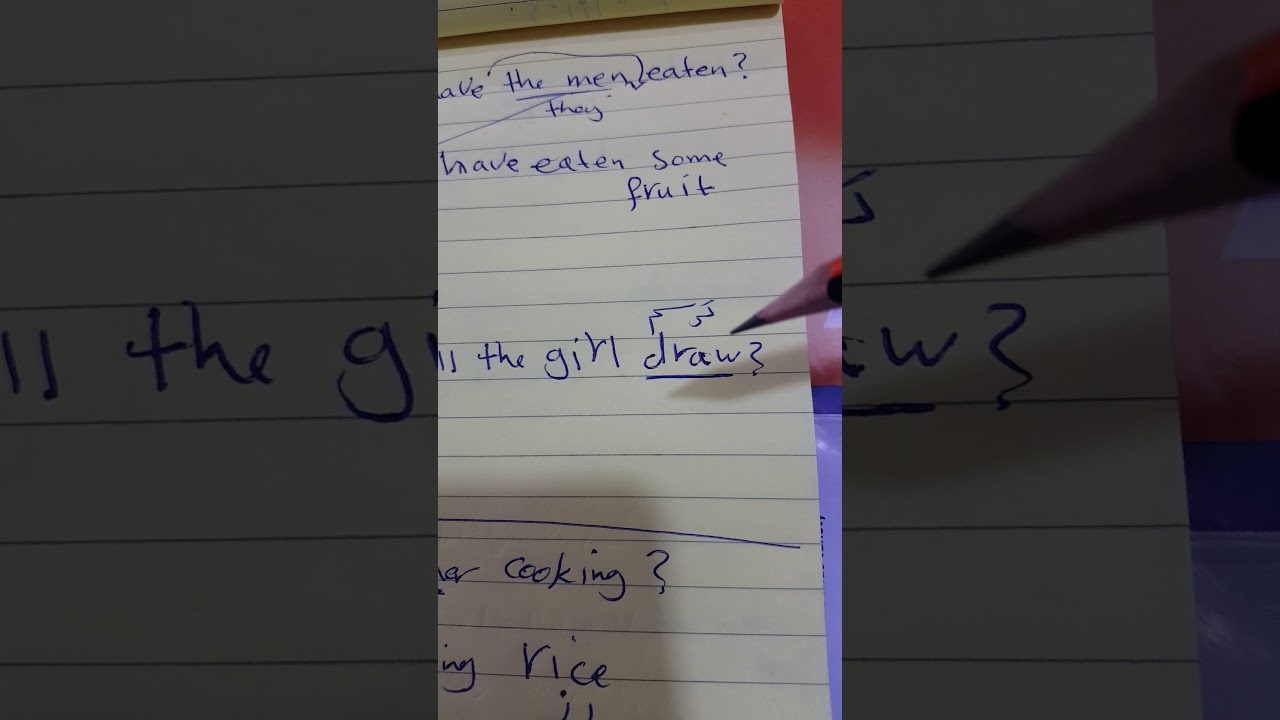 ave the men eaten?
they
have eaten some
fruit
ترسم
ll the girl draw?
er cooking?
ing rice